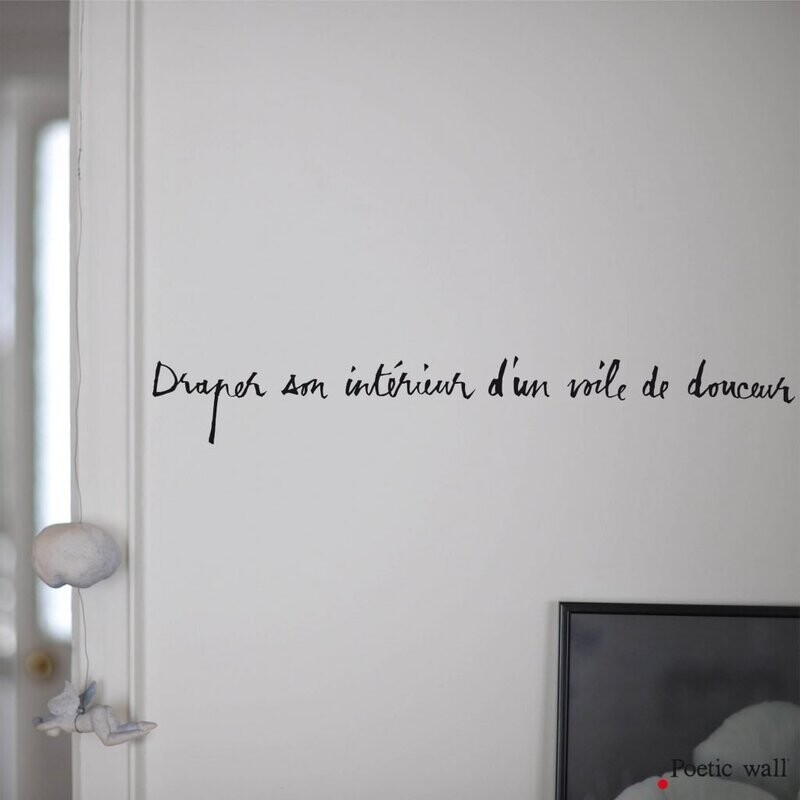 Draper son intérieur d'un voile de douceur
Poetic wall